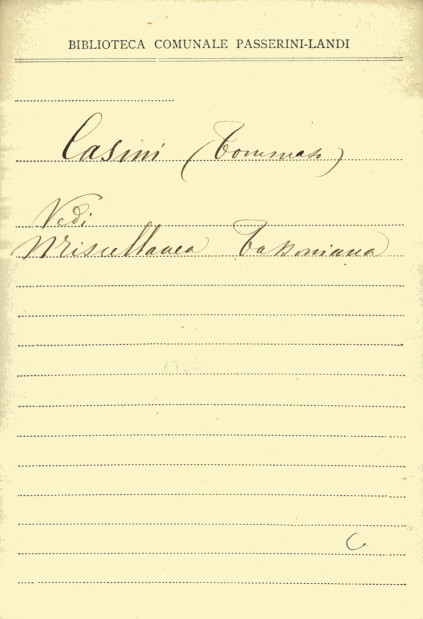 BIBLIOTECA COMUNALE PASSERINI-LANDI
Casini (Tommaso)
Vedi
Miscellanea Tassoniana
C